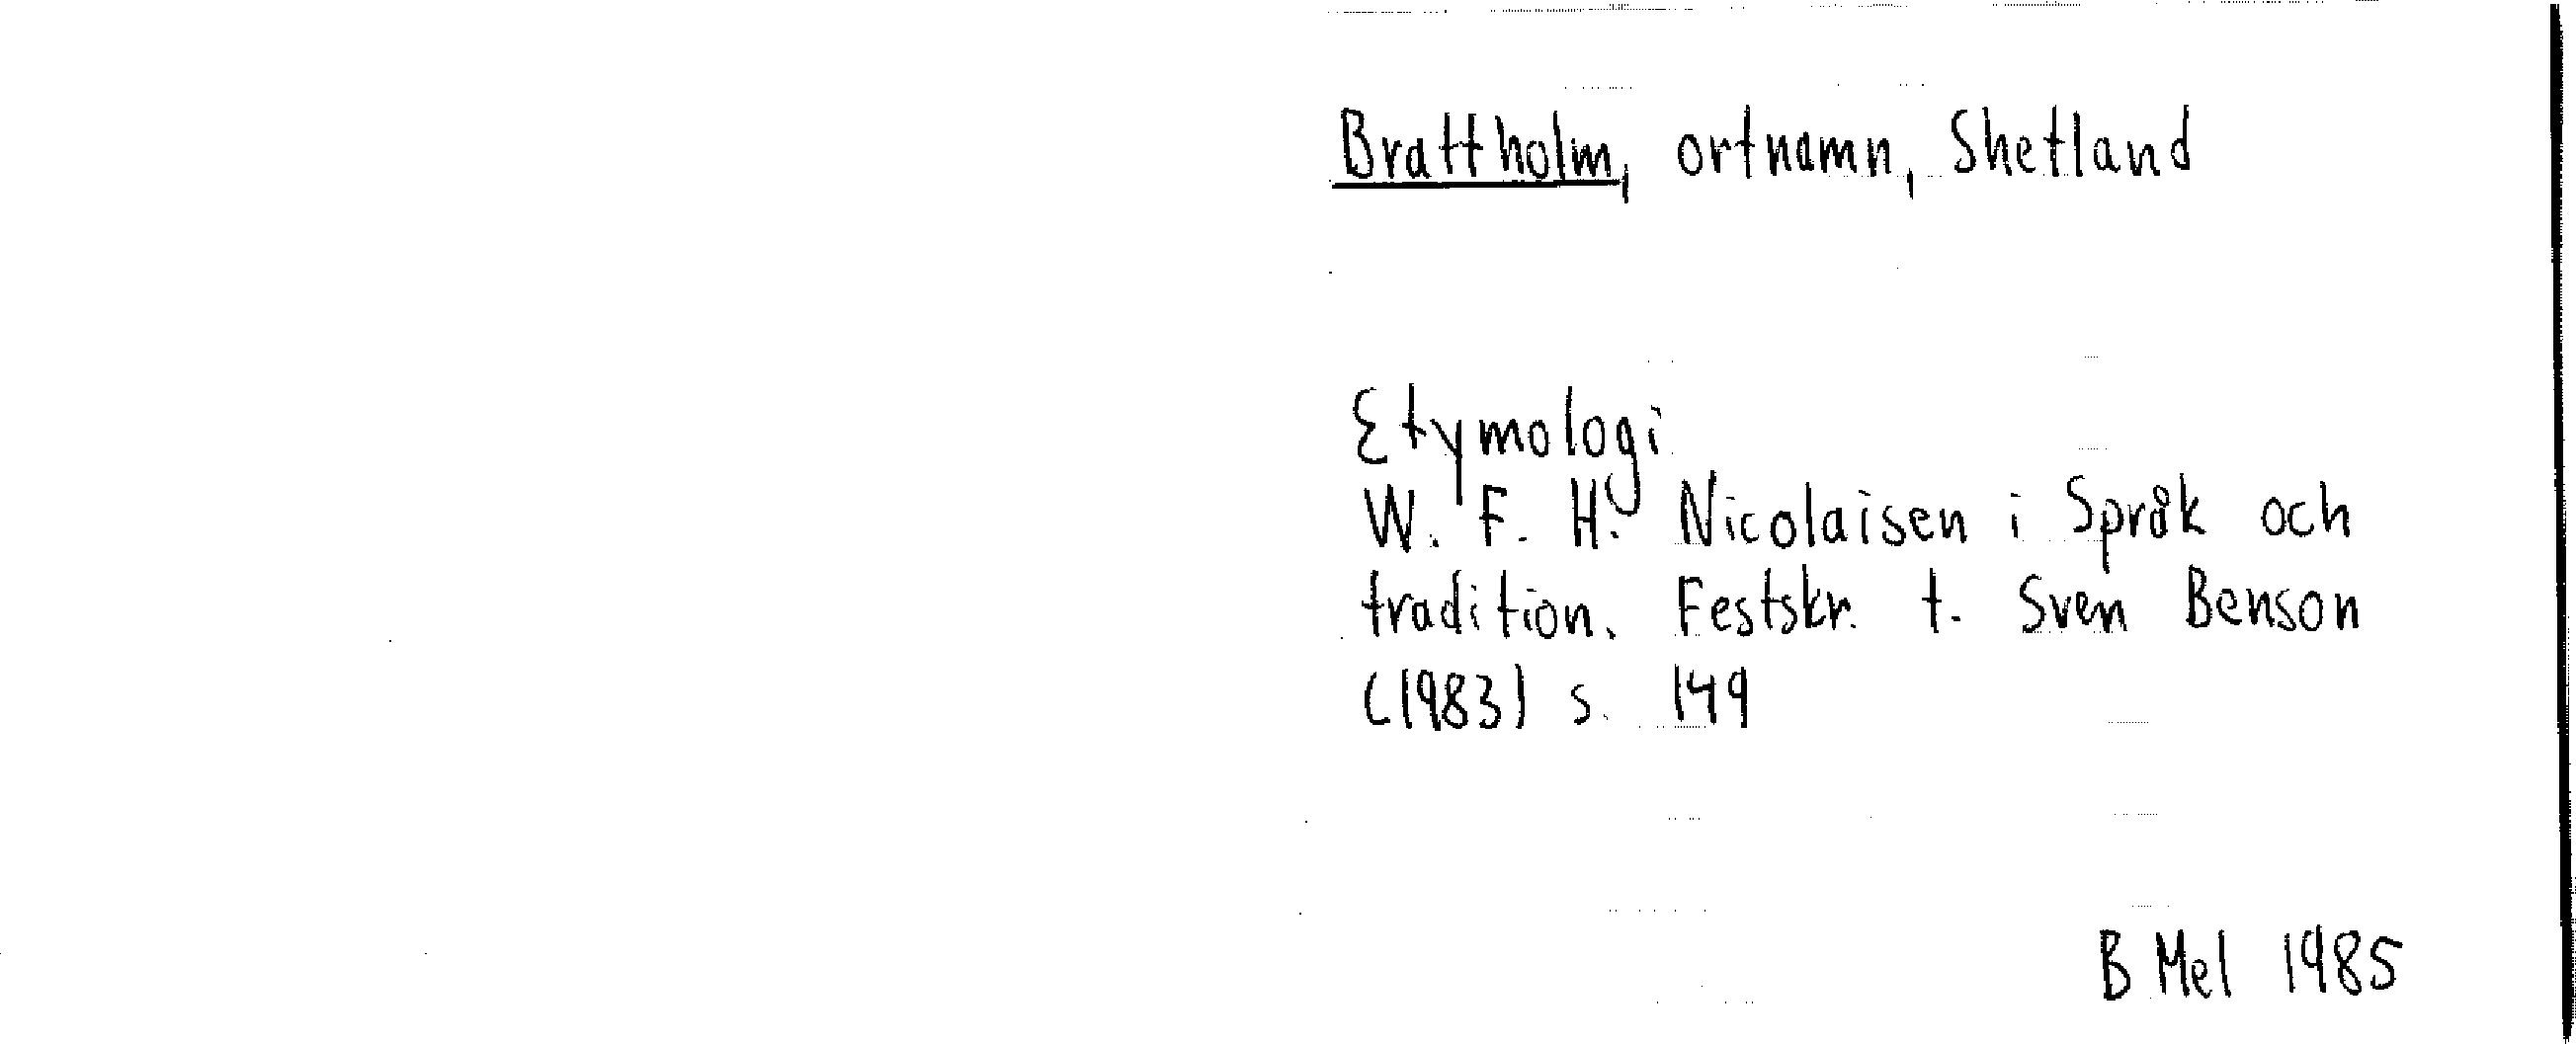 Brattholm, ortnamn, Shetland
Etymologi
W. F. H. Nicolaisen i Språk och
tradition. Festskr. t. Sven Benson
(1983) s. 149
B Mel 1985